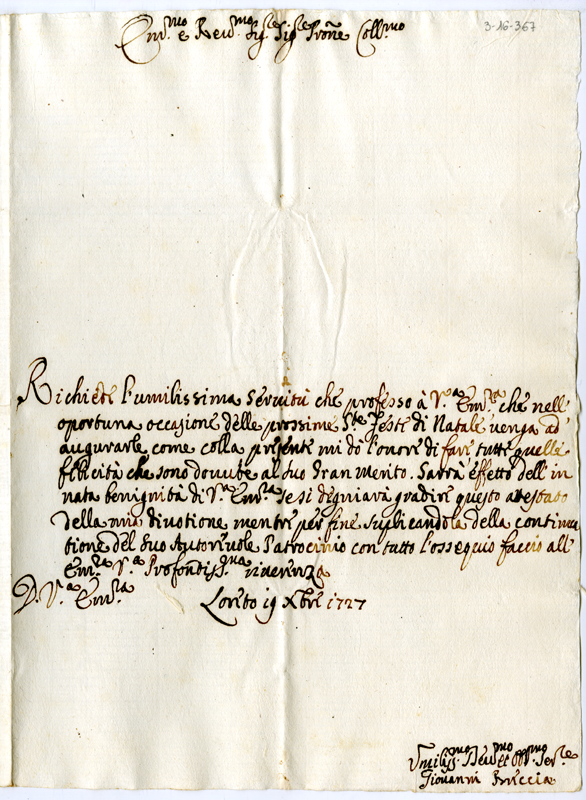 3-16-367
Em.mo e Reu.mo Sig.re Sig.re Prone Coll.mo
Richiede l'umilissima Seruitù che professo à V.a Em.za che nell'
oportuna occasione delle prossime S.te Feste di Natale uenga ad
augurarle come colla presente mi dò l'onore di fare tutte quelle
felicità che sono douute al suo gran merito. Sarrà effetto dell'in
nata benignità di V.a Em.za se si degniarà gradire questo attestato
della mia diuotione mentre per fine suplicandola della continua
tione del suo Autoreuole Patrocinio con tutto l'ossequio faccio all'
Em.za V.a Profondiss.ma riuerenza
D. V.a Em.za
Loreto 19 Xbre 1727
Umiliss.mo Deu.mo et Obb.mo Ser.re
Giovanni